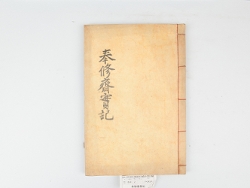 奉修齋實記